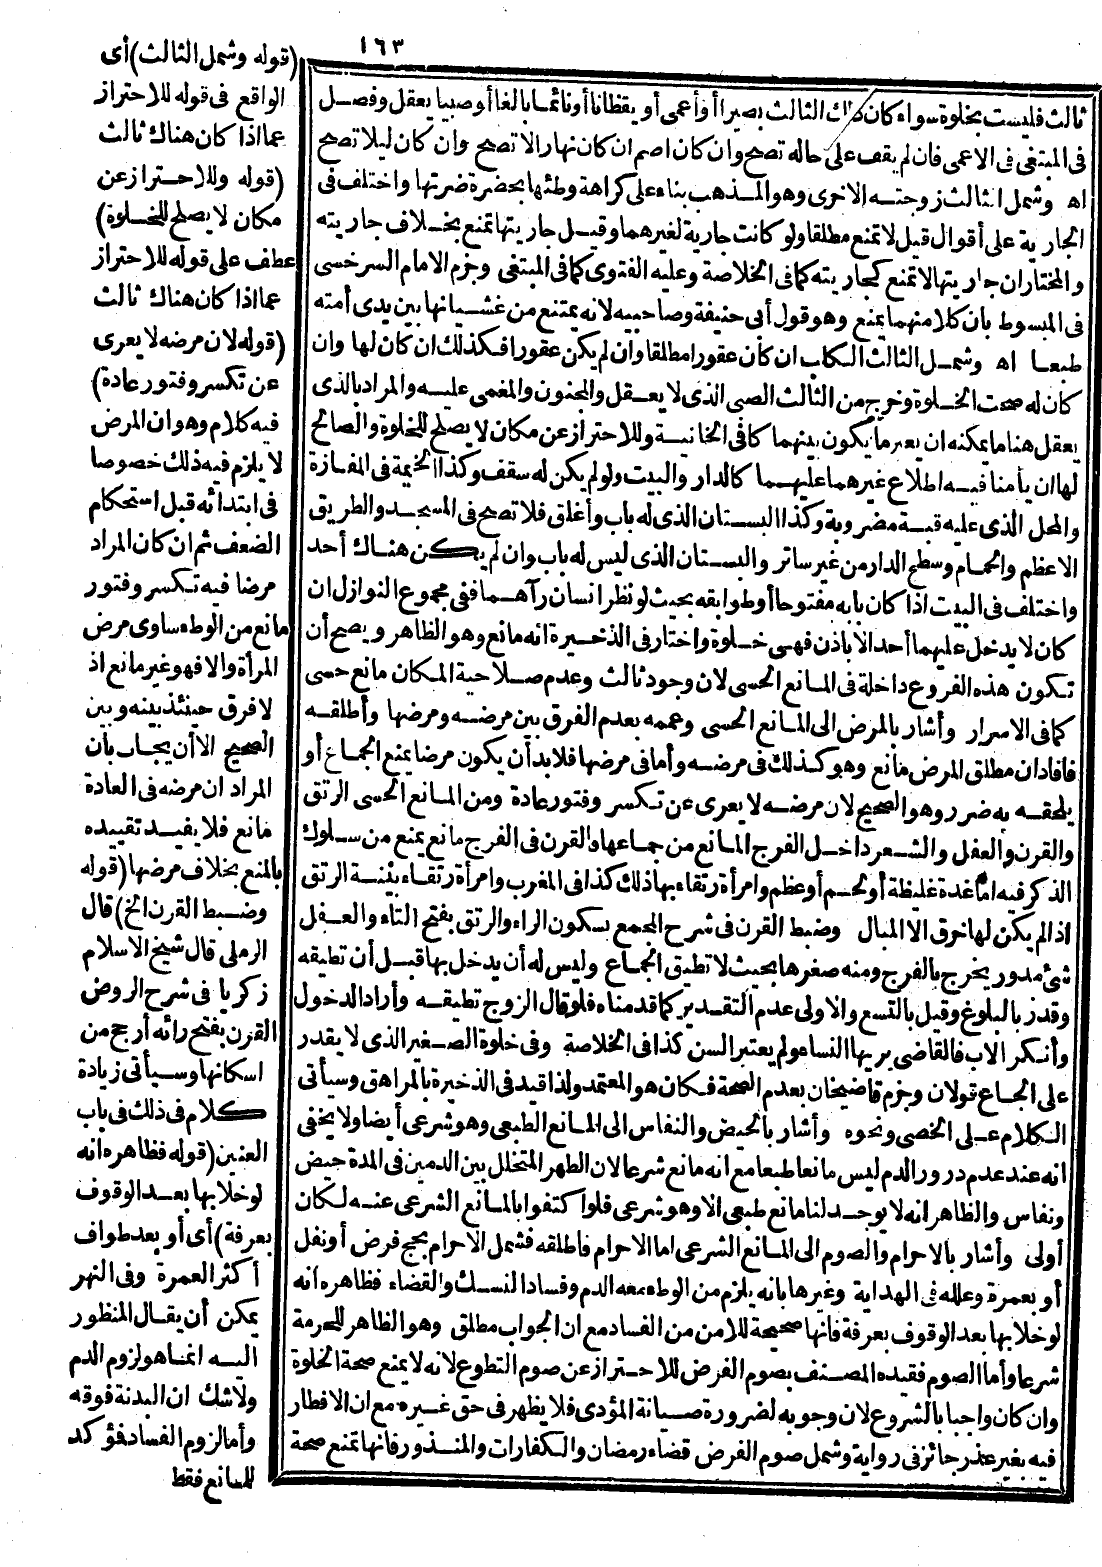 ١٦٣
ثالث فليست بخلوة سواء كان ذلك الثالث بصيرا أو أعمى أو يقظانا أو نائما بالغا أو صبيا يعقل وفصل
فى المبتغى فى الاعمى فان لم يقف على حاله تصح وان كان اصم ان كان نهارا لا تصح وان كان ليلا تصح
اه وشمل الثالث زوجته الاخرى وهو المذهب بناء على كراهة وطئها بحضرة ضرتها واختلف فى
الجارية على أقوال قيل لا تمنع مطلقا ولو كانت جارية لغيرهما وقيل جاريتها تمنع بخلاف جاريته
والمختار ان جاريتها لا تمنع كجاريته كما فى الخلاصة وعليه الفتوى كما فى المبتغى وجزم الامام السرخسى
فى المبسوط بان كلا منهما يمنع وهو قول أبى حنيفة وصاحبيه لانه يمتنع من غشيانها بين يدى أمته
طبعا اه وشمل الثالث الكلب ان كان عقورا مطلقا وان لم يكن عقورا فكذلك ان كان لها وان
كان له صحت الخلوة وخرج من الثالث الصبى الذى لا يعقل والمجنون والمغمى عليه والمراد بالذى
يعقل هنا ما يمكنه ان يعبر ما يكون بينهما كما فى الخانية وللاحتراز عن مكان لا يصلح للخلوة والصالح
لها ان يأمنا فيه اطلاع غيرهما عليهما كالدار والبيت ولو لم يكن له سقف وكذا الخيمة فى المفازة
والمحل الذى عليه قبة مضروبة وكذا البستان الذى له باب وأغلق فلا تصح فى المسجد والطريق
الاعظم والحمام وسطح الدار من غير ساتر والبستان الذى ليس له باب وان لم يكن هناك أحد
واختلف فى البيت اذا كان بابه مفتوحا أو طوابقه بحيث لو نظر انسان رآهما ففى مجموع النوازل ان
كان لا يدخل عليهما أحد الا باذن فهى خلوة واختار فى الذخيرة انه مانع وهو الظاهر ويصح أن
تكون هذه الفروع داخلة فى المانع الحسى لان وجود ثالث وعدم صلاحية المكان مانع حسى
كما فى الاسرار وأشار بالمرض الى المانع الحسى وعممه بعدم الفرق بين مرضه ومرضها وأطلقه
فافاد ان مطلق المرض مانع وهو كذلك فى مرضه وأما فى مرضها فلا بد أن يكون مرضا يمنع الجماع أو
يلحقه به ضرر وهو الصحيح لان مرضه لا يعرى عن تكسر وفتور عادة ومن المانع الحسى الرتق
والقرن والعفل والشعر داخل الفرج المانع من جماعها والقرن فى الفرج مانع يمنع من سلوك
الذكر فيه اما غدة غليظة أو لحم أو عظم وامرأة رتقاء بها ذلك كذا فى المغرب وامرأة رتقاء بينة الرتق
اذا لم يكن لها خرق الا المبال وضبط القرن فى شرح المجمع بسكون الراء والرتق بفتح التاء والعفل
شئ مدور يخرج بالفرج ومنه صغرها بحيث لا تطيق الجماع وليس له أن يدخل بها قبل أن تطيقه
وقدر بالبلوغ وقيل بالتسع والاولى عدم التقدير كما قدمناه فلو قال الزوج تطيقه وأراد الدخول
وأنكر الاب فالقاضى يريها النساء ولم يعتبر السن كذا فى الخلاصة وفى خلوة الصغير الذى لا يقدر
على الجماع قولان وجزم قاضيخان بعدم الصحة فكان هو المعتمد ولذا قيد فى الذخيرة بالمراهق وسيأتى
الكلام على الخصى ونحوه وأشار بالحيض والنفاس الى المانع الطبعى وهو شرعى أيضا ولا يخفى
انه عند عدم درور الدم ليس مانعا طبعا مع انه مانع شرعا لان الطهر المتخلل بين الدمين فى المدة حيض
ونفاس والظاهر انه لا يوجد لنا مانع طبعى الا وهو شرعى فلو اكتفوا بالمانع الشرعى عنه لكان
أولى وأشار بالاحرام والصوم الى المانع الشرعى اما الاحرام فاطلقه فشمل الاحرام بحج فرض أو نفل
أو بعمرة وعلله فى الهداية وغيرها بانه يلزم من الوطء معه الدم وفساد النسك والقضاء فظاهره انه
لو خلا بها بعد الوقوف بعرفة فانها صحيحة للامن من الفساد مع ان الجواب مطلق وهو الظاهر للحرمة
شرعا وأما الصوم فقيده المصنف بصوم الفرض للاحتراز عن صوم التطوع لانه لا يمنع صحة الخلوة
وان كان واجبا بالشروع لان وجوبه لضرورة صيانة المؤدى فلا يظهر فى حق غيره مع ان الافطار
فيه بغير عذر جائز فى رواية وشمل صوم الفرض قضاء رمضان والكفارات والمنذور فانها تمنع صحة
(قوله وشمل الثالث) أى
الواقع فى قوله للاحتراز
عما اذا كان هناك ثالث
(قوله وللاحتراز عن
مكان لا يصلح للخلوة)
عطف على قوله للاحتراز
عما اذا كان هناك ثالث
(قوله لان مرضه لا يعرى
عن تكسر وفتور عادة)
فيه كلام وهو ان المرض
لا يلزم فيه ذلك خصوصا
فى ابتدائه قبل استحكام
الضعف ثم ان كان المراد
مرضا فيه تكسر وفتور
مانع من الوطء ساوى مرض
المرأة والا فهو غير مانع اذ
لا فرق حينئذ بينه وبين
الصحيح الا أن يجاب بأن
المراد ان مرضه فى العادة
مانع فلا يفيد تقييده
بالمنع بخلاف مرضها (قوله
وضبط القرن الخ) قال
الرملى قال شيخ الاسلام
زكريا فى شرح الروض
القرن بفتح رائه أرجح من
اسكانها وسيأتى زيادة
كلام فى ذلك فى باب
العنين (قوله فظاهره انه
لو خلا بها بعد الوقوف
بعرفة) أى أو بعد طواف
أكثر العمرة وفى النهر
يمكن أن يقال المنظور
اليه انما هو لزوم الدم
ولا شك ان البدنة فوقه
وأما لزوم الفساد فمؤكد
للمانع فقط